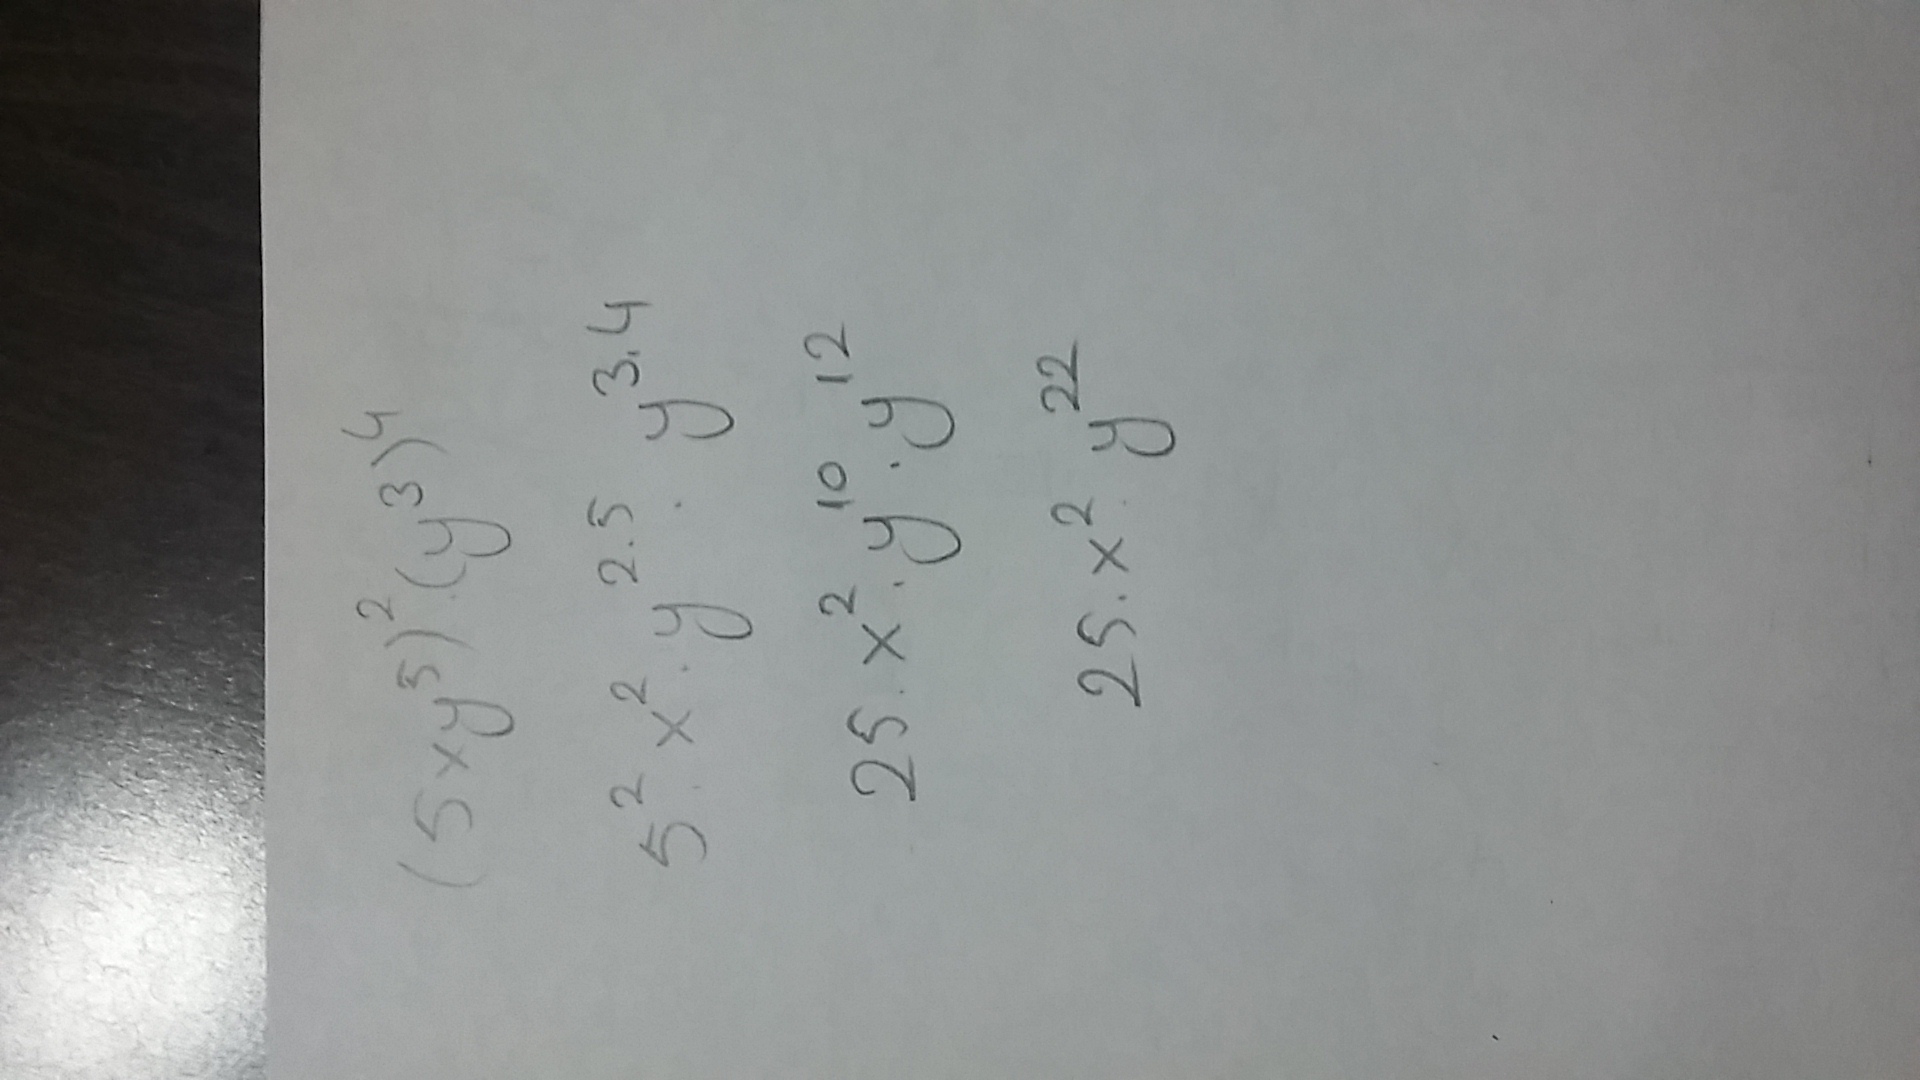 (5xy⁵)²·(y³)⁴
5²·x²·y²·⁵·y³·⁴
25·x²·y¹⁰·y¹²
25·x²·y²²